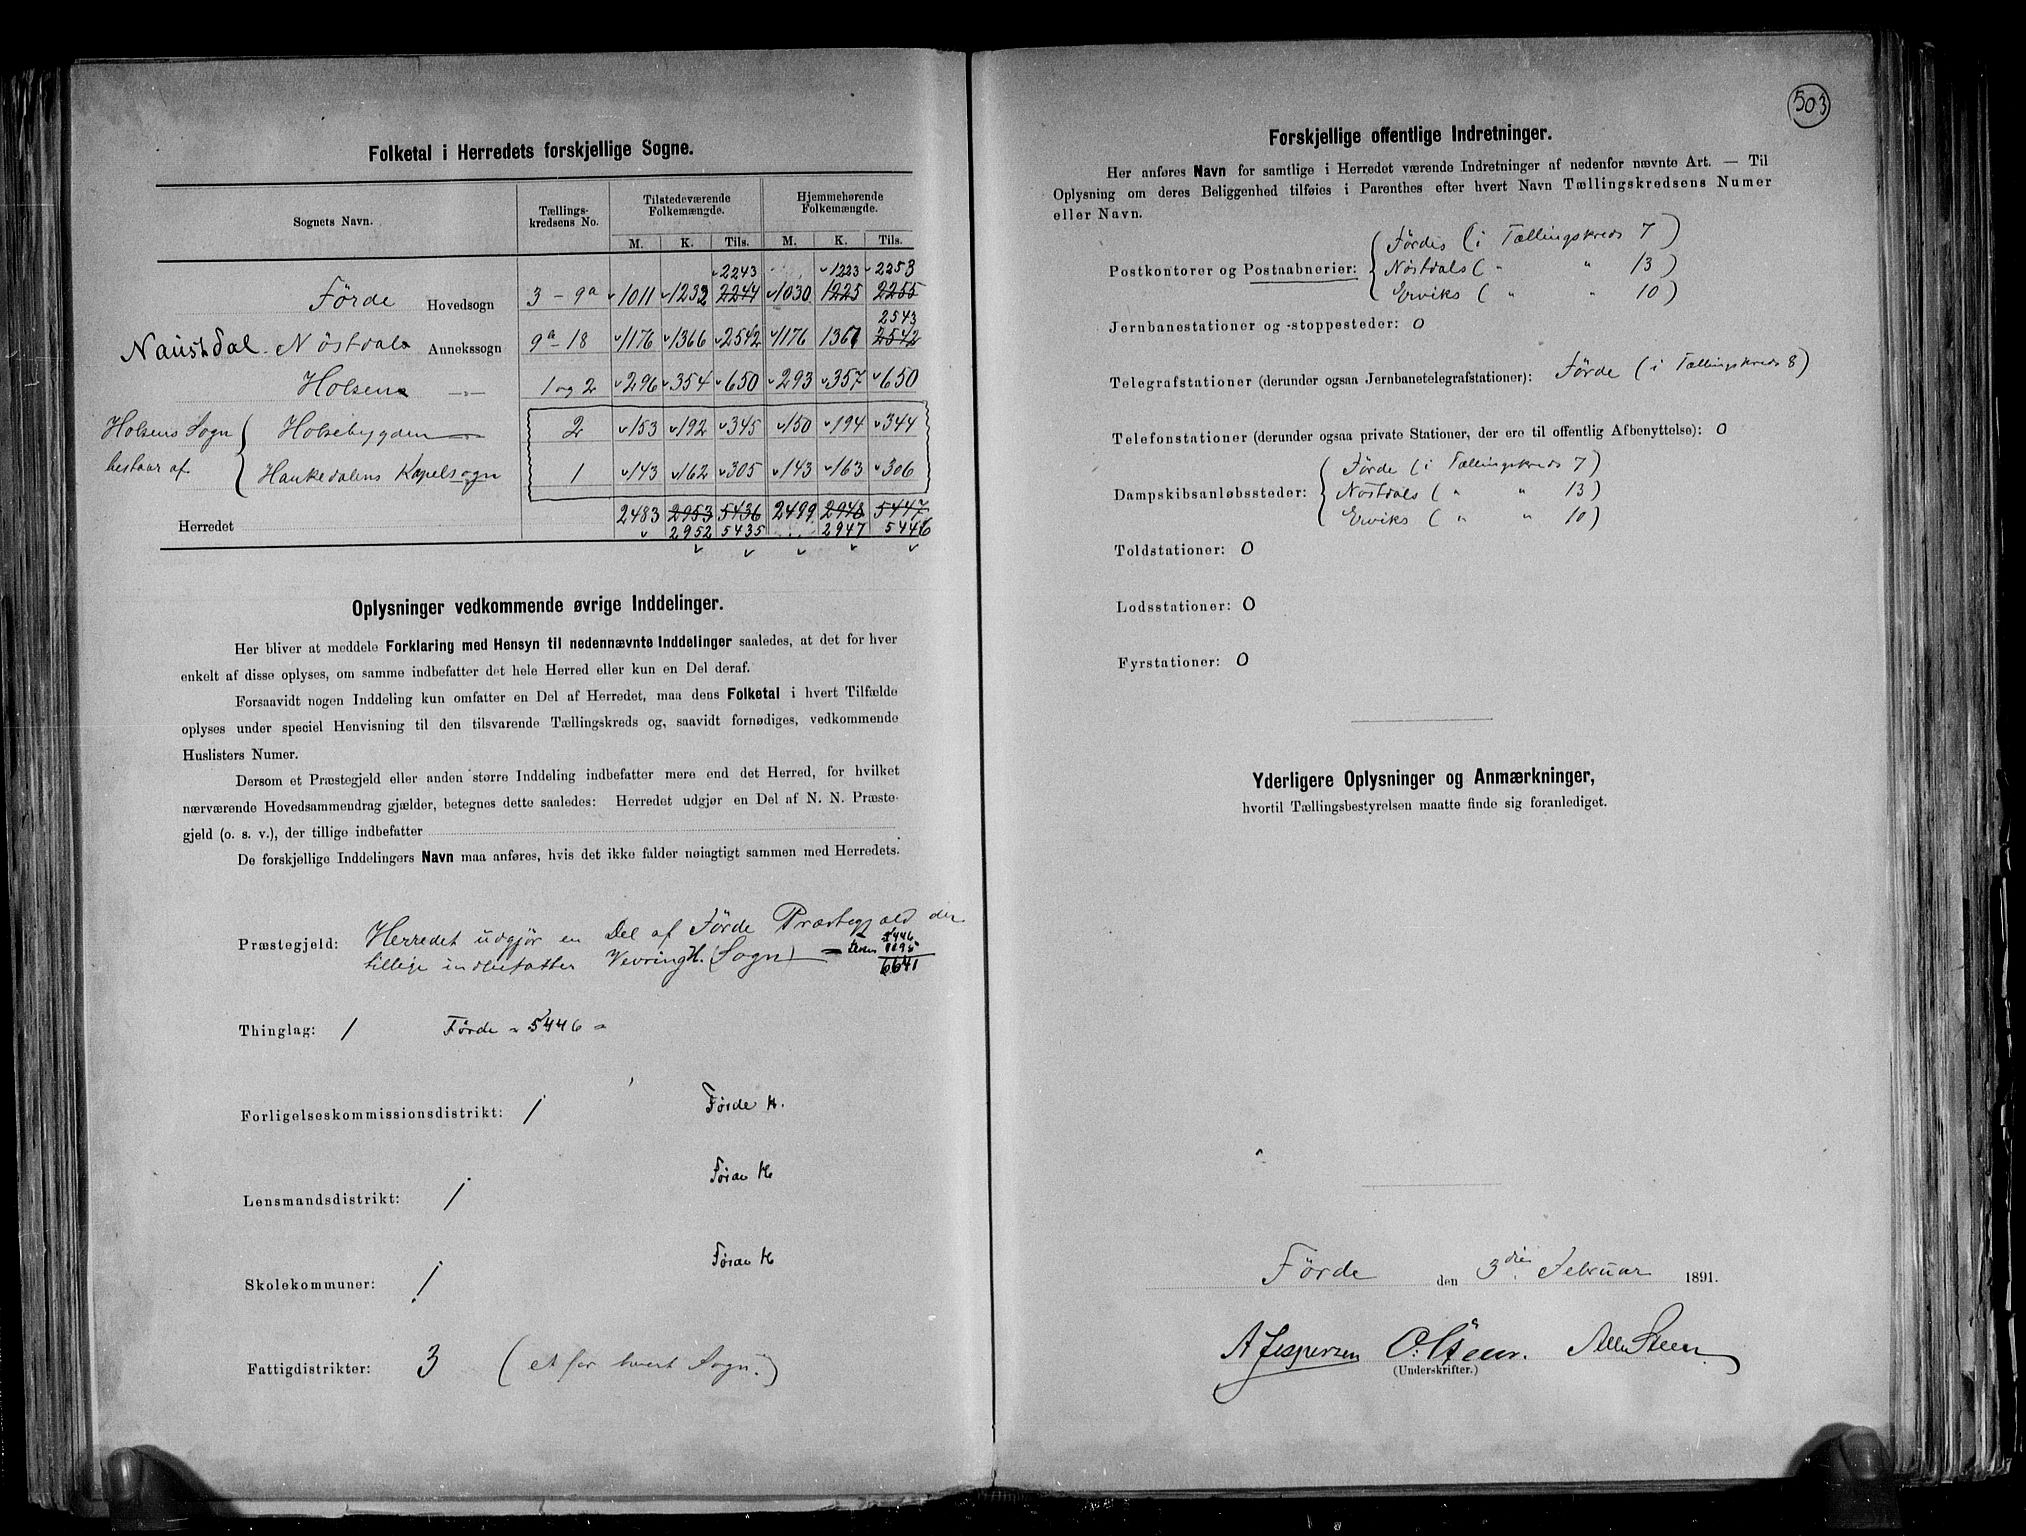 Folketal i Herredets forskjellige Sogne.
Sognets Navn. Tællings-kredsens No. Tilstedeværende Folkemængde. Hjemmehørende Folkemængde.
M. K. Tils. M. K. Tils.
2243 1223 2253
Førde Hovedsogn 3 - 9a 1011 1232 2244 1030 1225 2255
2543
Naustdal. Nöstdals Annekssogn 9a - 18 1176 1366 2542 1176 1367 2542
Holsens -"- 1 og 2 296 354 650 293 357 650
Holsens Sogn Holsebygden 2 153 192 345 150 194 344
bestaar af. Haukedalens Kapelsogn 1 143 162 305 143 163 306
Herredet 2483 2953 5436 2499 2948 5447
2952 5435 2947 5446
Oplysninger vedkommende øvrige Inddelinger.
Her bliver at meddele Forklaring med Hensyn til nedennævnte Inddelinger saaledes, at det for hver
enkelt af disse oplyses, om samme indbefatter det hele Herred eller kun en Del deraf.
Forsaavidt nogen Inddeling kun omfatter en Del af Herredet, maa dens Folketal i hvert Tilfælde
oplyses under speciel Henvisning til den tilsvarende Tællingskreds og, saavidt fornødiges, vedkommende
Huslisters Numer.
Dersom et Præstegjeld eller anden større Inddeling indbefatter mere end det Herred, for hvilket
nærværende Hovedsammendrag gjælder, betegnes dette saaledes: Herredet udgjør en Del af N. N. Præste-
gjeld (o. s. v.), der tillige indbefatter
De forskjellige Inddelingers Navn maa anføres, hvis det ikke falder nøiagtigt sammen med Herredets.
Præstegjeld: Herredet udgjør en Del af Førde Præstegjæld der 5446
tillige indbefatter Vevring H. (Sogn) 1195
6641
Thinglag: 1 Førde = 5446 =
Forligelseskommissionsdistrikt: 1 Førde H.
Lensmandsdistrikt: 1 Førde H
Skolekommuner: 1 Førde H
Fattigdistrikter: 3 (et for hvert Sogn.)
503
Forskjellige offentlige Indretninger.
Her anføres Navn for samtlige i Herredet værende Indretninger af nedenfor nævnte Art. — Til
Oplysning om deres Beliggenhed tilføies i Parenthes efter hvert Navn Tællingskredsens Numer
eller Navn.
Førdes (i Tællingskreds 7)
Postkontorer og Postaabnerier: Nöstdals ( " " 13)
Erviks ( " " 10)
Jernbanestationer og -stoppesteder: 0
Telegrafstationer (derunder ogsaa Jernbanetelegrafstationer): Førde (i Tællingskreds 8)
Telefonstationer (derunder ogsaa private Stationer, der ere til offentlig Afbenyttelse): 0
Førde (i Tællingskreds 7)
Dampskibsanløbssteder: Nöstdals ( " " 13)
Erviks ( " " 10)
Toldstationer: 0
Lodsstationer: 0
Fyrstationer: 0
Yderligere Oplysninger og Anmærkninger,
hvortil Tællingsbestyrelsen maatte finde sig foranlediget.
Førde den 3die Februar 1891.
A Jespersen O. Steen
(Underskrifter.)